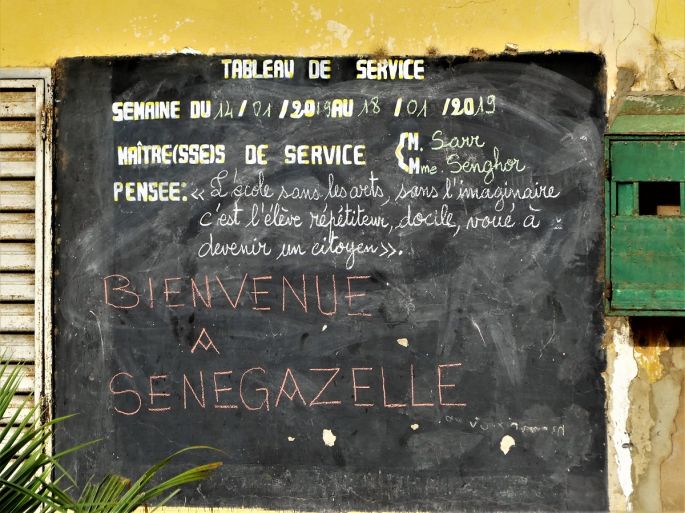 TABLEAU DE SERVICE
SEMAINE DU 14/01/2019 AU 18/01/2019
MAÎTRE(SSE)S DE SERVICE { M. Sarr
Mme. Senghor
PENSEE: « L'école sans les arts, sans l'imaginaire
c'est l'élève répétiteur, docile, voué à
devenir un citoyen».
BIENVENUE
A
SENEGAZELLE